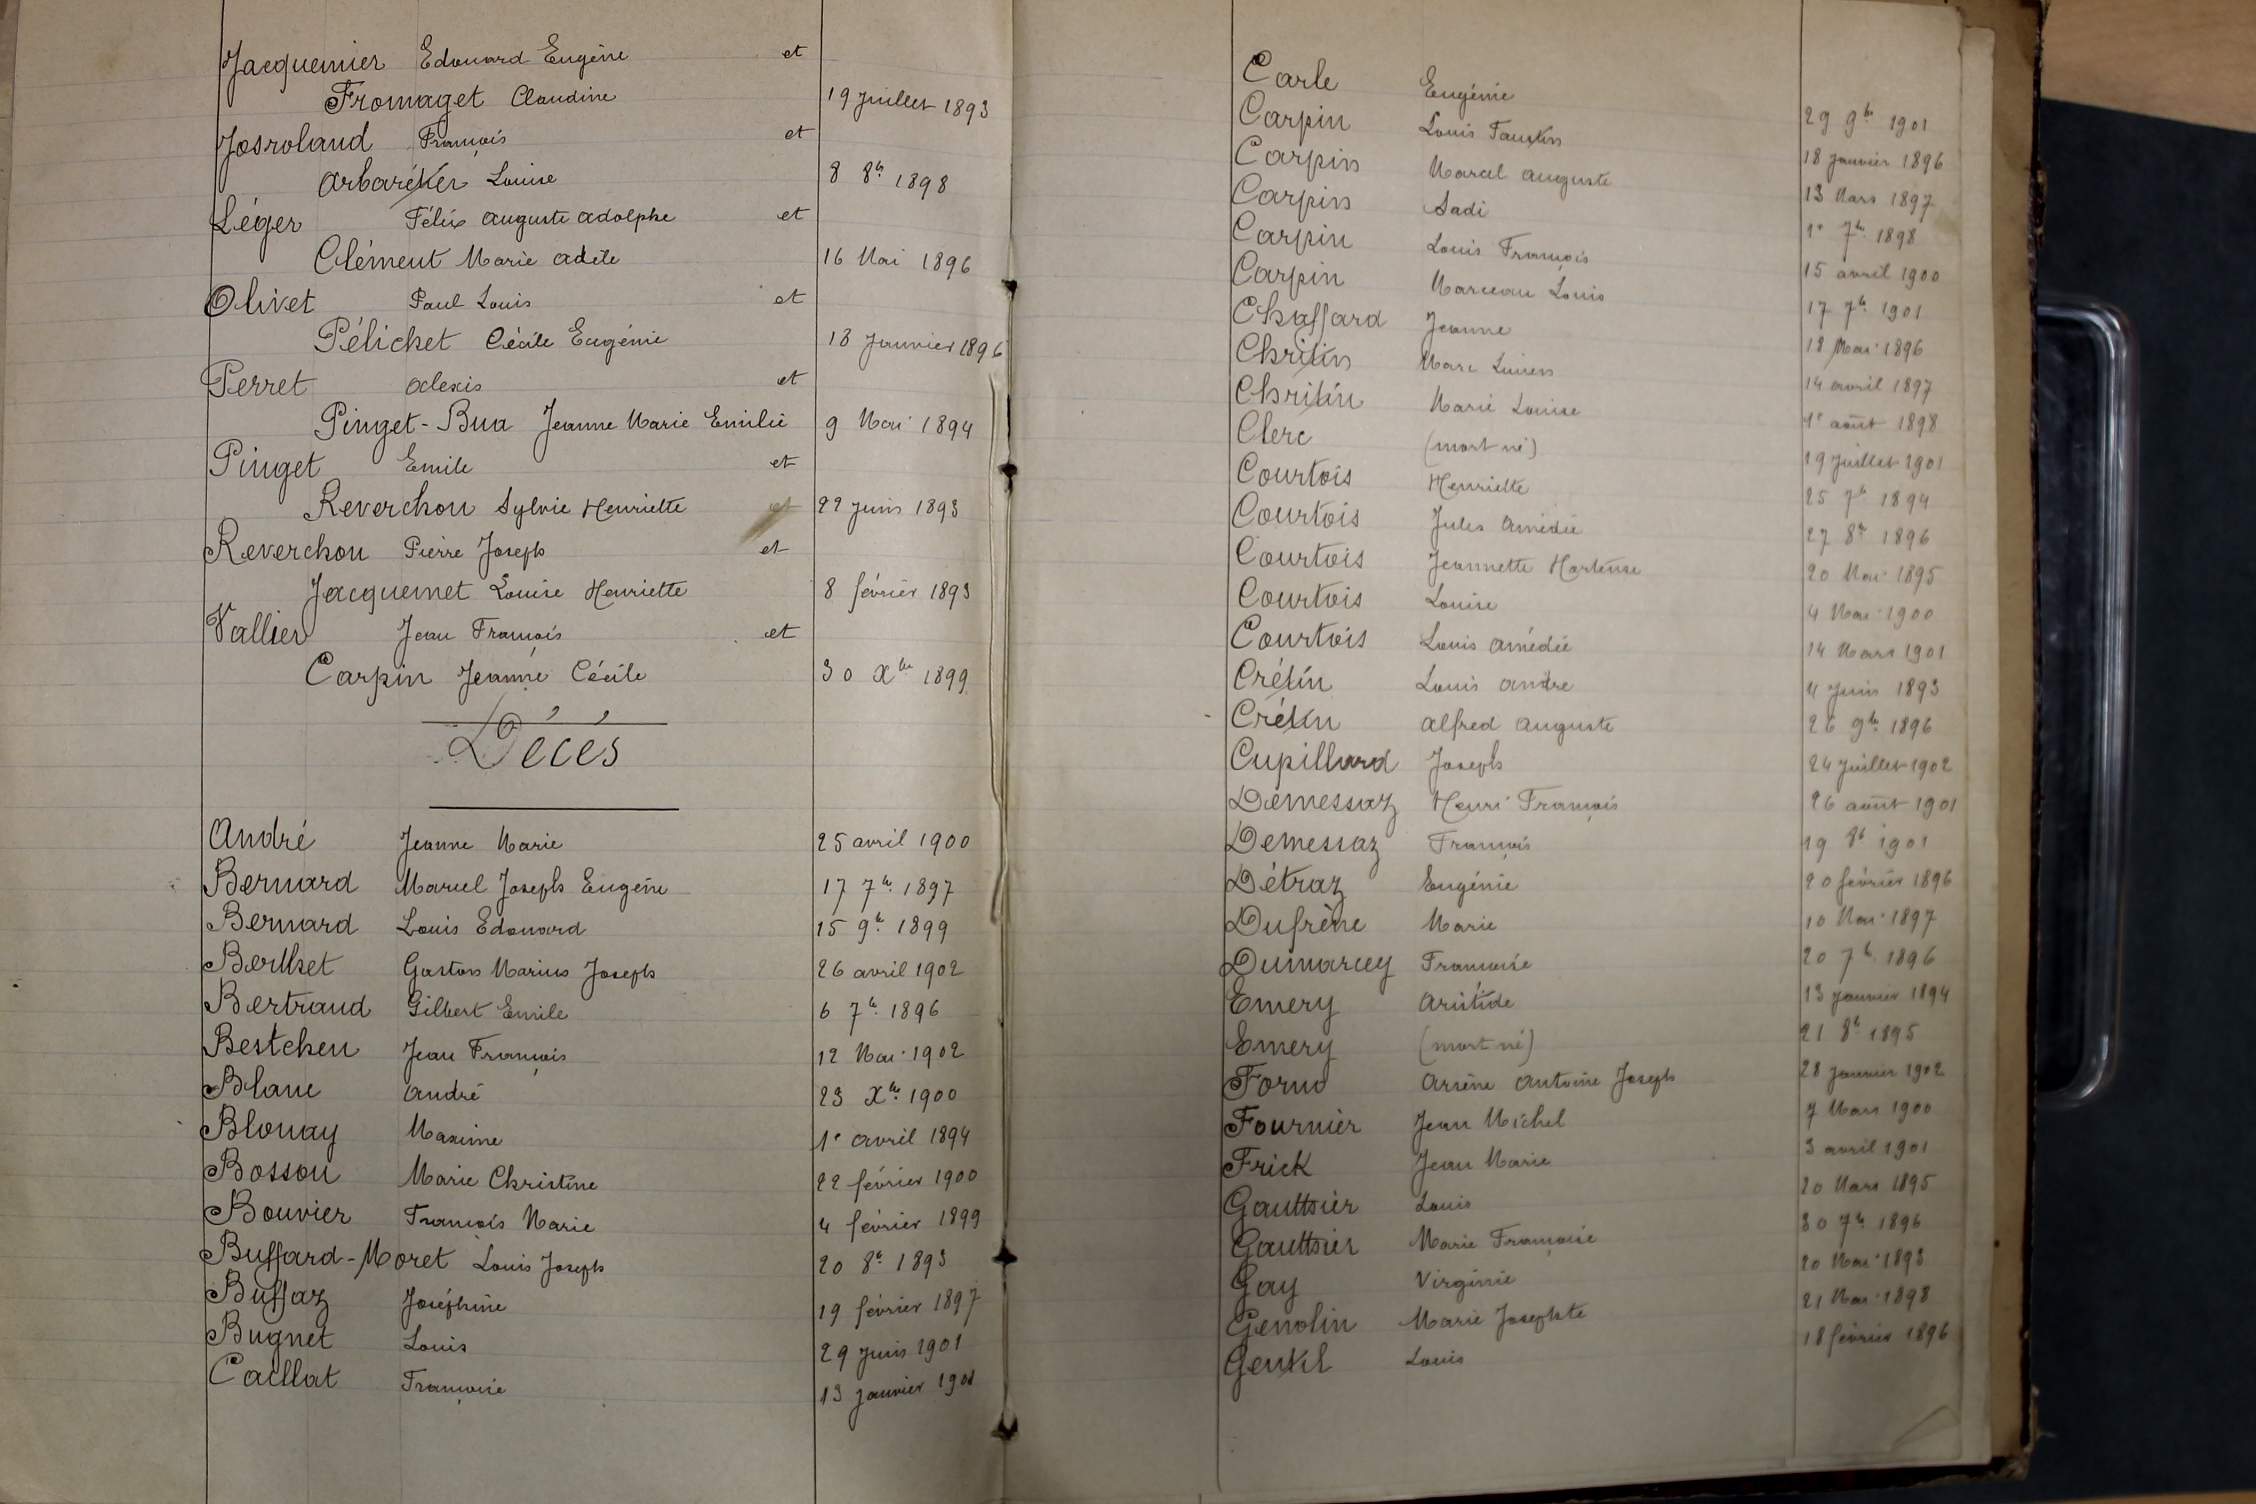 Jacquemier Edouard Eugène et
Fromaget Claudine 19 Juillet 1893
Josroland François et
Arbarétier Louise 8 8bre 1898
Léger Félix Auguste Adolphe et
Clément Marie Adèle 16 Mai 1896
Olivet Paul Louis et
Pélichet Cécile Eugénie 18 Janvier 1896
Perret Alexis et
Pinget-Bua Jeanne Marie Emilie 9 Mai 1894
Pinget Emile et
Reverchon Sylvie Henriette et 22 Juin 1893
Reverchon Pierre Joseph et
Jacquemet Louise Henriette 8 février 1893
Vallier Jean François et
Carpin Jeanne Cécile 30 Xbre 1899
Décès
André Jeanne Marie 25 avril 1900
Bernard Marcel Joseph Eugène 17 7bre 1897
Bernard Louis Edouard 15 9bre 1899
Berthet Gaston Marius Joseph 26 avril 1902
Bertrand Gilbert Emile 6 7bre 1896
Bestchen Jean François 12 Mai 1902
Blanc André 23 Xbre 1900
Blonay Maxime 1er avril 1894
Bosson Marie Christine 22 février 1900
Bouvier François Marie 4 février 1899
Buffard-Moret Louis Joseph 20 8bre 1893
Buffaz Joséphine 19 février 1897
Bugnet Louis 29 Juin 1901
Caillat Françoise 13 Janvier 1901
Carle Eugénie 29 9bre 1901
Carpin Louis Faustin 18 Janvier 1896
Carpin Marcel Auguste 13 Mars 1897
Carpin Sadi 1er 7bre 1898
Carpin Louis François 15 avril 1900
Carpin Marceau Louis 17 7bre 1901
Chaffard Jeanne 18 Mai 1896
Chritin Marc Lucien 14 avril 1897
Chritin Marie Louise 1er août 1898
Clerc (mort né) 19 Juillet 1901
Courtois Henriette 25 7bre 1894
Courtois Jules Amédée 27 8bre 1896
Courtois Jeannette Hortense 20 Mai 1895
Courtois Louise 4 Mai 1900
Courtois Louis Amédée 14 Mars 1901
Crétin Louis André 4 Juin 1893
Crétin Alfred Auguste 26 9bre 1896
Cupillard Joseph 24 Juillet 1902
Démessaz Henri François 26 août 1901
Demessaz François 19 8bre 1901
Détraz Eugénie 20 février 1896
Dufrène Marie 10 Mai 1897
Dumarcey Françoise 20 7bre 1896
Emery Aristide 13 Janvier 1894
Emery (mort né) 21 8bre 1895
Forno Arsène Antoine Joseph 28 Janvier 1902
Fournier Jean Michel 7 Mars 1900
Frick Jean Marie 3 avril 1901
Gautthier Louis 20 Mars 1895
Gautthier Marie Françoise 30 7bre 1896
Gay Virginie 20 Mai 1893
Genolin Marie Josephte 21 Mai 1898
Gentil Louis 18 février 1896